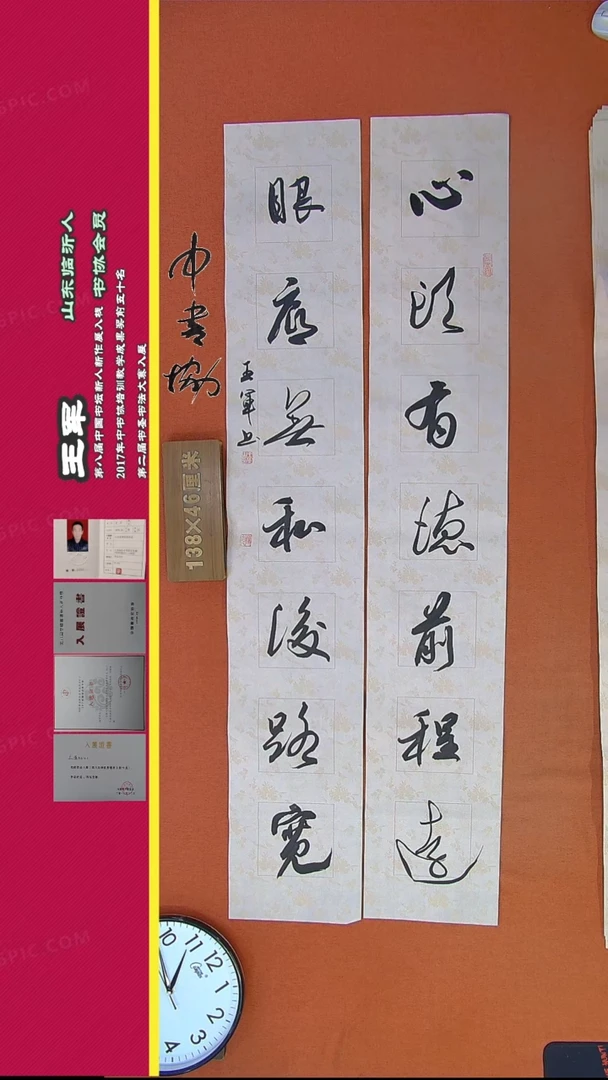 心頭有德前程遠
眼底無私後路寬
王軍书
中书协
138×46厘米
王军
山东临沂人
书协会员
第八届中国书坛新人新作展入
2017年中书协培训教学成果奖前五十名
第二届书圣书法大赛入展
入展證書
10 11 12 1 2 3 4